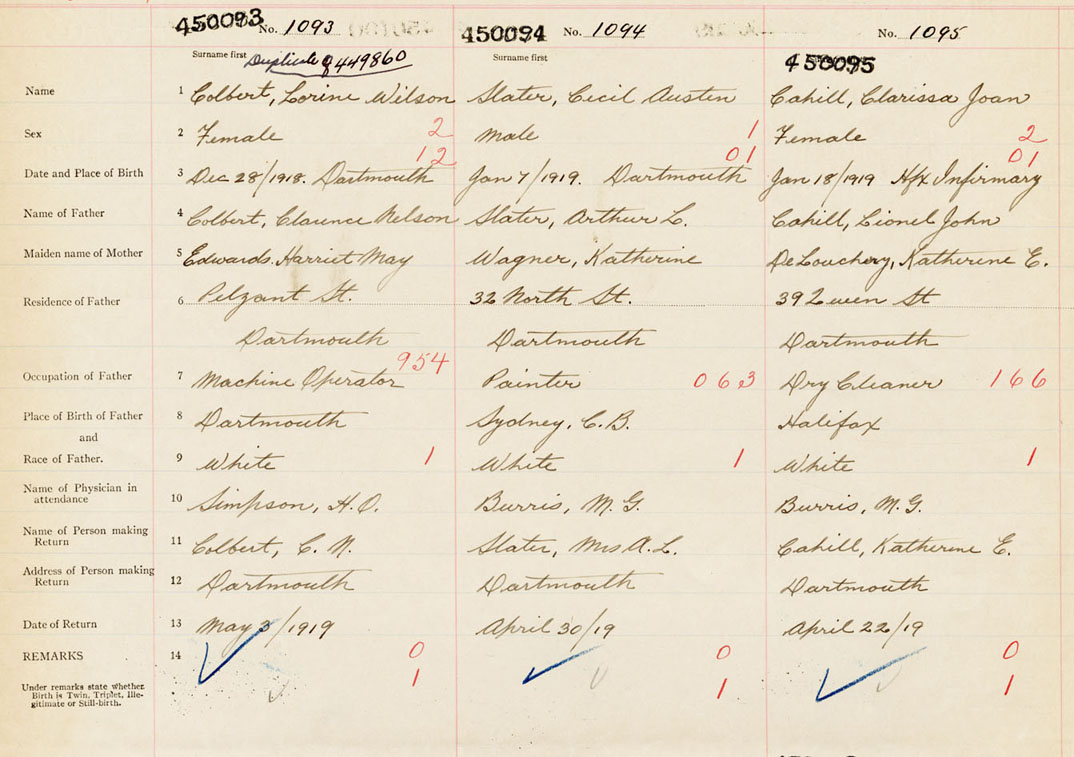 450093 No. 1093 450094 No. 1094 No. 1095
Surname first Duplicate of 449860 Surname first 450095
Name 1 Colbert, Lorine Wilson Slater, Cecil Austen Cahill, Clarissa Joan
Sex 2 Female 2 Male 1 Female 2
12 01 01
Date and Place of Birth 3 Dec 28/1918. Dartmouth Jan 7/1919. Dartmouth Jan 18/1919 Hfx Infirmary
Name of Father 4 Colbert, Clarence Nelson Slater, Arthur L. Cahill, Lionel John
Maiden name of Mother 5 Edwards. Harriet May Wagner, Katherine DeLouchery, Katherine E.
Residence of Father 6 Pelzant St. 32 North St. 39 Queen St
Dartmouth Dartmouth Dartmouth
954
Occupation of Father 7 Machine Operator Painter 063 Dry Cleaner 166
Place of Birth of Father 8 Dartmouth Sydney, C.B. Halifax
and
Race of Father. 9 White 1 White 1 White 1
Name of Physician in
attendance 10 Simpson, H.O. Burris, M.G. Burris, M.G.
Name of Person making
Return 11 Colbert, C.N. Slater, Mrs A.L. Cahill, Katherine E.
Address of Person making
Return 12 Dartmouth Dartmouth Dartmouth
Date of Return 13 May 3/1919 April 30/19 April 22/19
REMARKS 14 0 0 0
Under remarks state whether 1 1 1
Birth is Twin, Triplet, Ille-
gitimate or Still-birth.